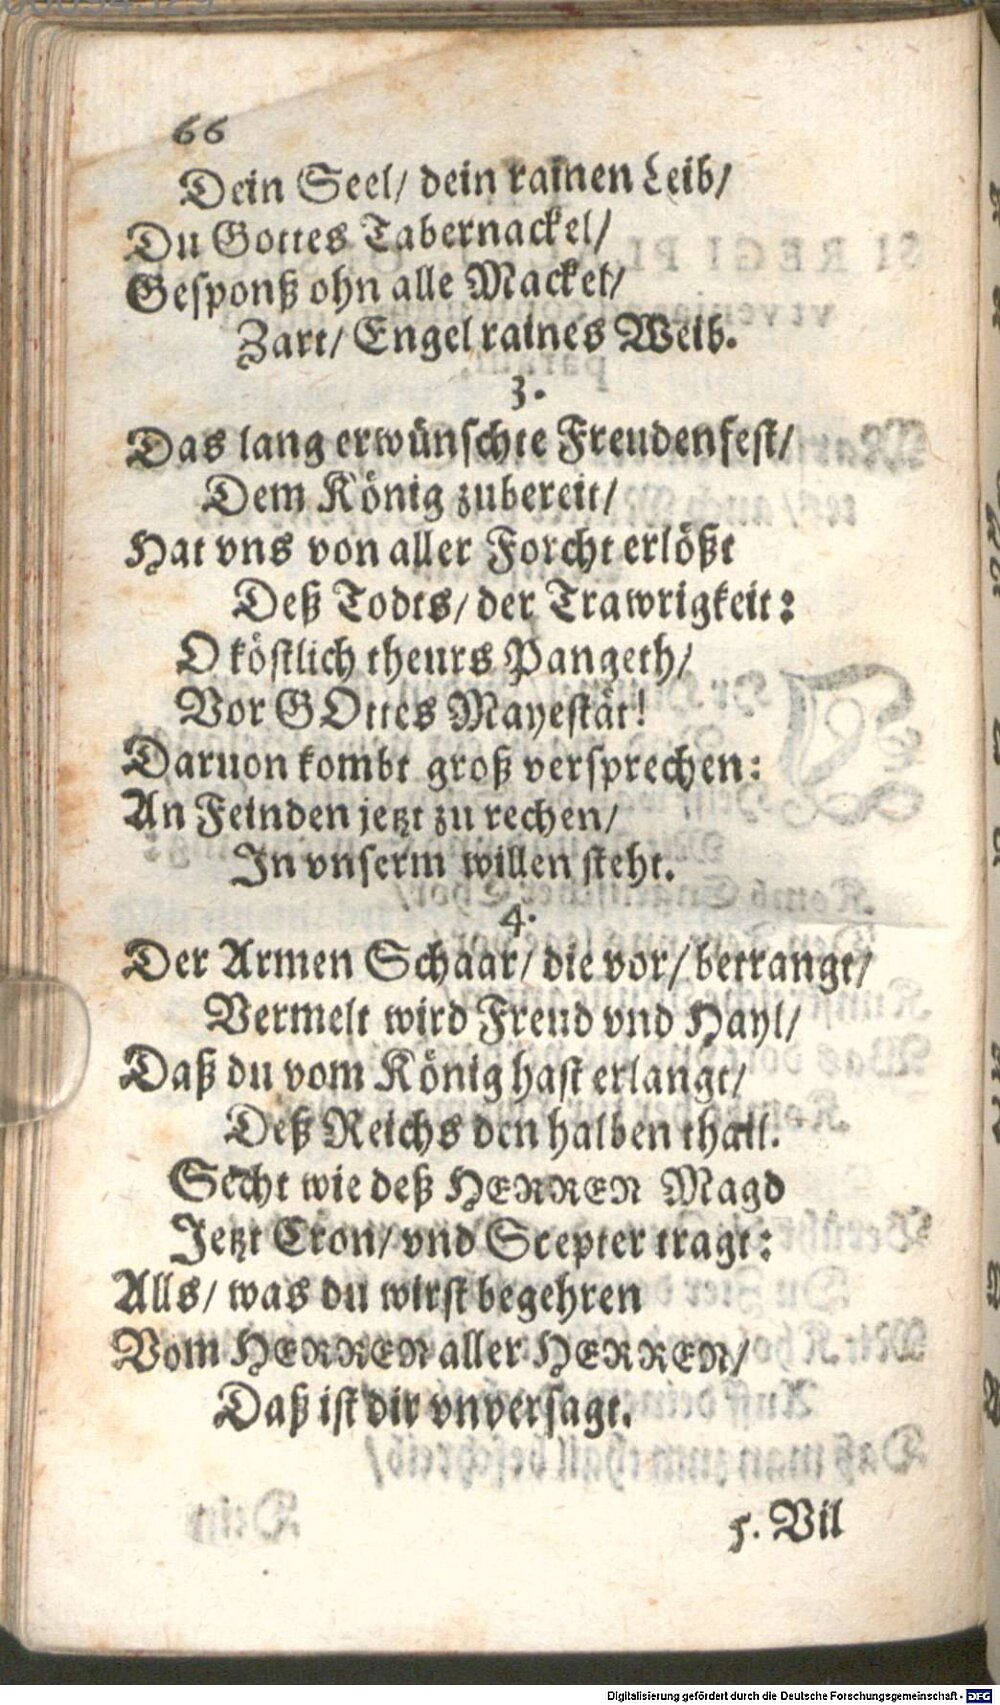 66
Dein Seel/ dein rainen Leib/
Du Gottes Tabernackel/
Gesponß ohn alle Mackel/
Zart/ Engel raines Weib.
3.
Das lang erwünschte Freudenfest/
Dem König zubereit/
Hat vns von aller Forcht erlößt
Deß Todts/ der Trawrigkeit:
O köstlich theurs Pangeth/
Vor GOttes Mayestät!
Daruon kombt groß versprechen:
An Feinden jetzt zu rechen/
In vnserm willen steht.
4.
Der Armen Schaar/ die vor/ betrangt/
Vermelt wird Freud vnd Hayl/
Daß du vom König hast erlangt/
Deß Reichs den halben thail.
Secht wie deß HERREN Magd
Jetzt Cron/ vnd Scepter tragt:
Alls/ was du wirst begehren
Vom HERREN aller HERREN/
Daß ist dir vnversagt.
5. Vil
Digitalisierung gefördert durch die Deutsche Forschungsgemeinschaft - DFG